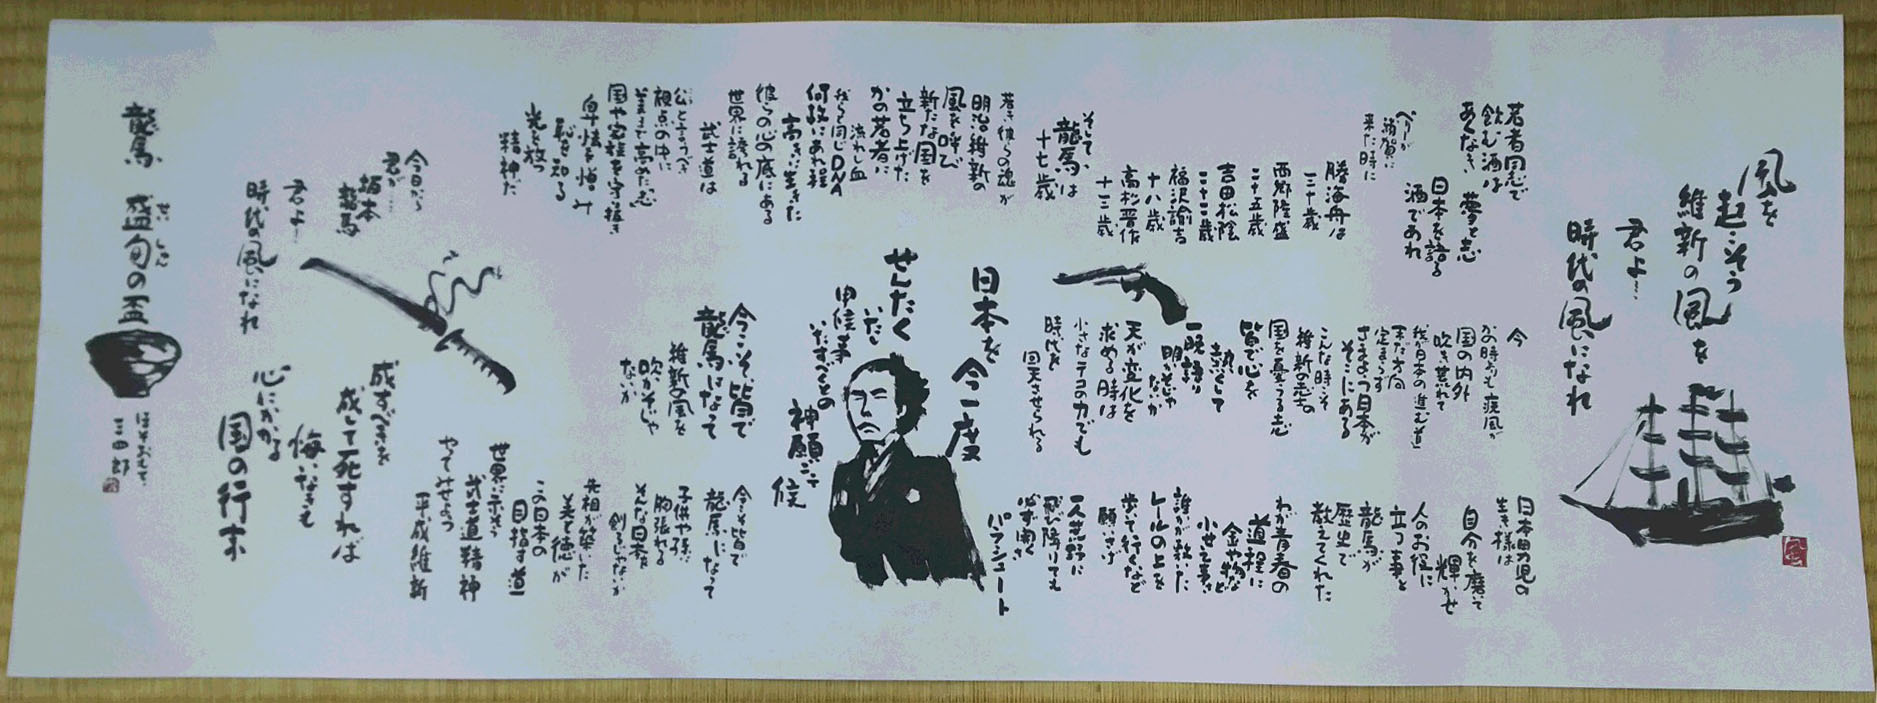 風を
起こそう
維新の風を
君よ…
時代の風になれ
若者同志で
飲む酒は
あくなき 夢と志
日本を語る
酒であれ
ペリーが
浦賀に
来た時に
勝海舟は
三十歳
西郷隆盛
二十五歳
吉田松陰
二十二歳
福沢諭吉
十八歳
高杉晋作
十三歳
そして、
龍馬は
十七歳
若き彼らの魂が
明治維新の
風を呼び
新たな国を
立ち上げた
かの若者に
流れし血
我らも同じDNA
何故にあれ程
高きに生きた
彼らの心の底にある
世界に誇れる
武士道は
公と言うべき
視点の中に
美まで高めた志
国や家族を守り抜き
卑怯を憎み
恥を知る
光を放つ
精神だ
今
かの時よりも疾風が
国の内外
吹き荒れて
我が日本の進む道
未だ方向
定まらず
さまよう日本が
そこにある
こんな時こそ
維新の志士の
国を憂うる志
皆で心を
熱くして
一晩語り
明かそじゃ
ないか
天が変化を
求める時は
小さなテコの力でも
時代を
回天させられる
日本男児の
生き様は
自分を磨いて
輝かせ
人のお役に
立つ事と
龍馬が
歴史で
教えてくれた
わが青春の
道程に
金や物など
小せえ事さ
誰かが敷いた
レールの上を
歩いて行くなど
願いさげ
一人荒野に
飛び降りても
必ず開く
パラシュート
日本を
今一度
せんたく
いたし
申候事
いたすべくとの
神願にて
候
今こそ、皆で
龍馬になって
維新の風を
吹かそじゃ
ないか
今こそ皆で
龍馬になって
子供や孫に
胸張れる
そんな日本を
創るじゃないか
先祖が築いた
美と徳が
この日本の
目指す道
世界に示そう
武士道精神
やってみせよう
平成維新
今日から
君が…
坂本
龍馬
君よ…
時代の風になれ
成すべきを
成して死すれば
悔いなきも
心にかかる
国の行末
龍馬 盛旬の盃
せい しゅん
ほそおもて
三四郎